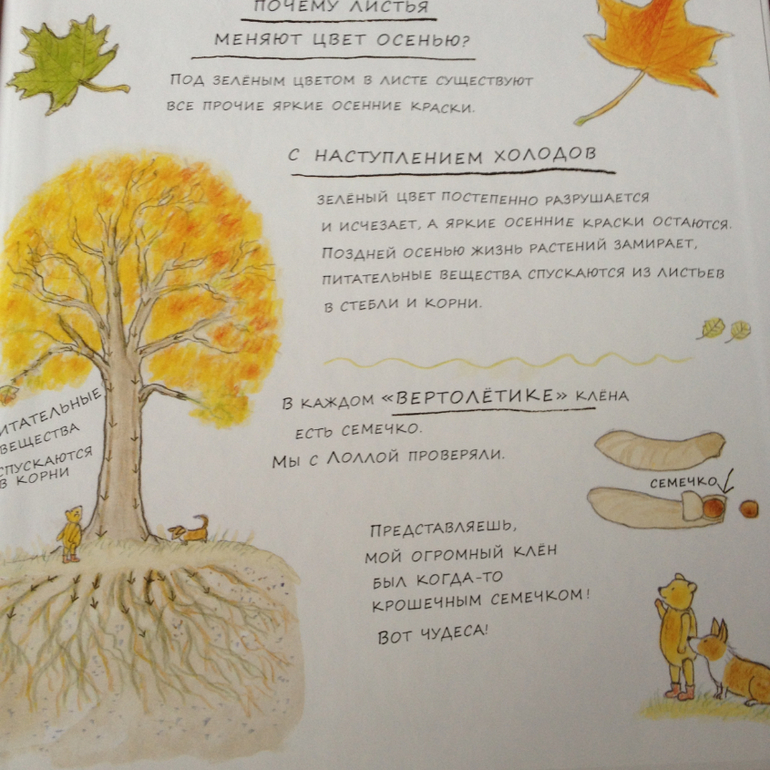 ПОЧЕМУ ЛИСТЬЯ
МЕНЯЮТ ЦВЕТ ОСЕНЬЮ?
ПОД ЗЕЛЁНЫМ ЦВЕТОМ В ЛИСТЕ СУЩЕСТВУЮТ
ВСЕ ПРОЧИЕ ЯРКИЕ ОСЕННИЕ КРАСКИ.
С НАСТУПЛЕНИЕМ ХОЛОДОВ
ЗЕЛЁНЫЙ ЦВЕТ ПОСТЕПЕННО РАЗРУШАЕТСЯ
И ИСЧЕЗАЕТ, А ЯРКИЕ ОСЕННИЕ КРАСКИ ОСТАЮТСЯ.
ПОЗДНЕЙ ОСЕНЬЮ ЖИЗНЬ РАСТЕНИЙ ЗАМИРАЕТ,
ПИТАТЕЛЬНЫЕ ВЕЩЕСТВА СПУСКАЮТСЯ ИЗ ЛИСТЬЕВ
В СТЕБЛИ И КОРНИ.
ИТАТЕЛЬНЫЕ
ВЕЩЕСТВА
СПУСКАЮТСЯ
В КОРНИ
В КАЖДОМ «ВЕРТОЛЁТИКЕ» КЛЁНА
ЕСТЬ СЕМЕЧКО.
МЫ С ЛОЛЛОЙ ПРОВЕРЯЛИ.
СЕМЕЧКО
ПРЕДСТАВЛЯЕШЬ,
МОЙ ОГРОМНЫЙ КЛЁН
БЫЛ КОГДА-ТО
КРОШЕЧНЫМ СЕМЕЧКОМ!
ВОТ ЧУДЕСА!